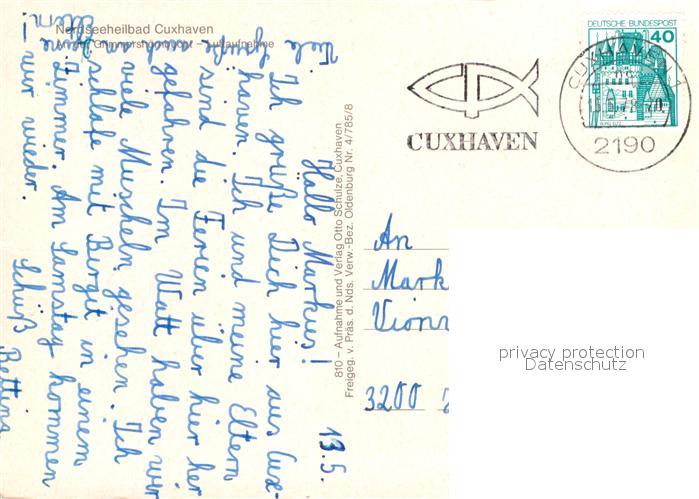 Nordseeheilbad Cuxhaven
An der Grimmershörnbucht - Luftaufnahme
810 - Aufnahme und Verlag Otto Schulze, Cuxhaven
Freigeg. v. Präs. d. Nds. Verw.-Bez. Oldenburg Nr. 4/785/8
13.5.
Hallo Markus!
Ich grüße Dich hier aus Cux-
haven. Ich und meine Eltern
sind die Ferien über hier her
gefahren. Im Watt haben wir
viele Muscheln gesehen. Ich
schlafe mit Birgit in einem
Zimmer. Am Samstag kommen
wir wieder.
Schüß
Bettina
Viele
Grüße
Eltern
CUXHAVEN
DEUTSCHE BUNDESPOST
40
CUXHAVEN 1
2190
An
Mark
Vionn
3200
privacy protection
Datenschutz